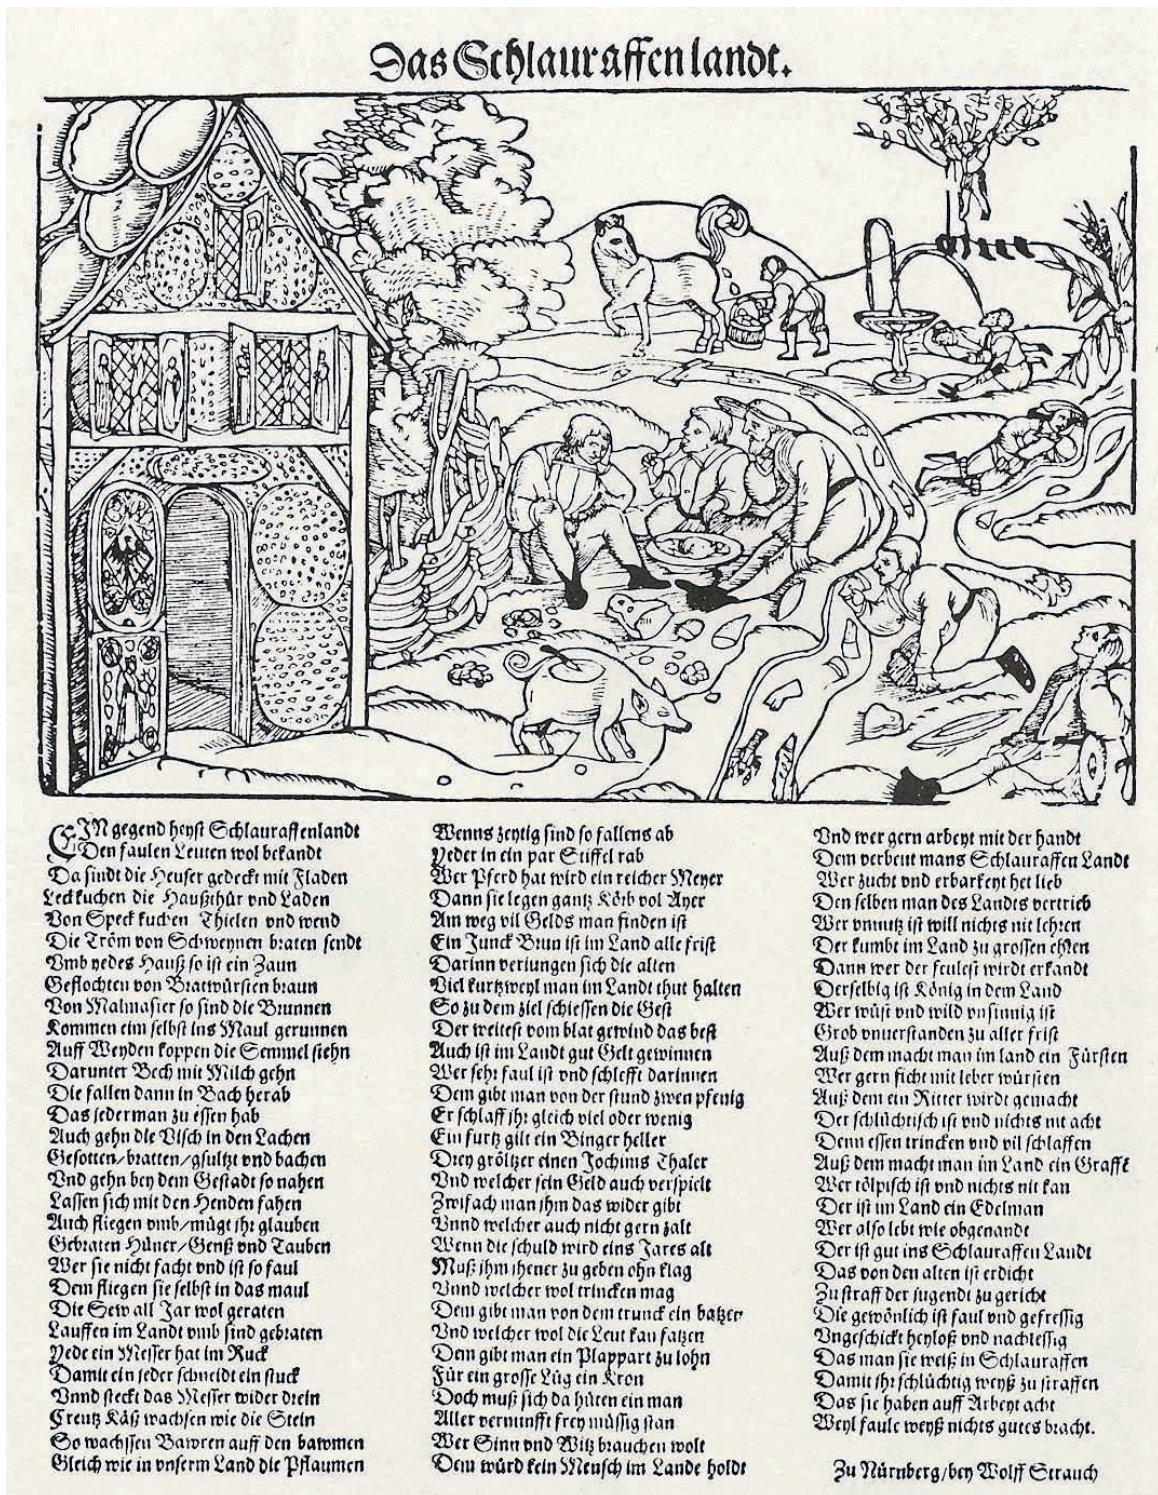 Das Schlauraffenlandt.
EIN gegend heyst Schlauraffenlandt
Den faulen Leuten wol bekandt
Da sindt die Heuser gedeckt mit Fladen
Leckkuchen die Haußthür vnd Laden
Von Speckkuchen Thielen vnd wend
Die Tröm von Schweynen braten sendt
Vmb yedes Hauß so ist ein Zaun
Geflochten von Bratwürsten braun
Von Malmasier so sind die Brunnen
Kommen eim selbst ins Maul gerunnen
Auff Weyden koppen die Semmel stehn
Darunter Bech mit Milch gehn
Die fallen dann in Bach herab
Das jederman zu essen hab
Auch gehn die Visch in den Lachen
Gesotten/bratten/gsultzt vnd bachen
Vnd gehn bey dem Gestadt so nahen
Lassen sich mit den Henden fahen
Auch fliegen vmb/mügt ihr glauben
Gebraten Hüner/Genß vnd Tauben
Wer sie nicht facht vnd ist so faul
Dem fliegen sie selbst in das maul
Die Sew all Jar wol geraten
Lauffen im Landt vmb sind gebraten
Yede ein Messer hat im Ruck
Damit ein jeder schneidt ein stuck
Vnnd steckt das Messer wider drein
Creutz Käß wachsen wie die Stein
So wachssen Bawren auff den bawmen
Gleich wie in vnserm Land die Pflaumen
Wenns zeytig sind so fallens ab
Yeder in ein par Stiffel rab
Wer Pferd hat wird ein reicher Meyer
Dann sie legen gantz Körb vol Ayer
Am weg vil Gelds man finden ist
Ein Junck Brun ist im Land alle frist
Darinn veriungen sich die alten
Viel kurtzweyl man im Landt thut halten
So zu dem ziel schiessen die Gest
Der weitest vom blat gewind das best
Auch ist im Landt gut Gelt gewinnen
Wer sehr faul ist vnd schlefft darinnen
Dem gibt man von der stund zwen pfenig
Er schlaff ihr gleich viel oder wenig
Ein furtz gilt ein Binger heller
Drey gröltzer einen Jochims Thaler
Vnd welcher sein Geld auch verspielt
Zwifach man ihm das wider gibt
Vnnd welcher auch nicht gern zalt
Wenn die schuld wird eins Jares alt
Muß ihm ihener zu geben ohn klag
Vnnd welcher wol trincken mag
Dem gibt man von dem trunck ein batzen
Vnd welcher wol die Leut kan fatzen
Dem gibt man ein Plappart zu lohn
Für ein grosse Lüg ein Kron
Doch muß sich da hüten ein man
Aller vernunfft frey müssig stan
Wer Sinn vnd Witz brauchen wolt
Dem würd kein Mensch im Lande holdt
Vnd wer gern arbeyt mit der handt
Dem verbeut mans Schlauraffen Landt
Wer zucht vnd erbarkeyt het lieb
Den selben man des Landts vertrieb
Wer vnnutz ist will nichts nit lehren
Der kumbt im Land zu grossen ehren
Dann wer der feulest wirdt erkandt
Derselbig ist König in dem Land
Wer wüst vnd wild vnsinnig ist
Grob vnuerstanden zu aller frist
Auß dem macht man im land ein Fürsten
Wer gern ficht mit leber würsten
Auß dem ein Ritter wirdt gemacht
Der schlüchtisch ist vnd nichts nit acht
Denn essen trincken vnd vil schlaffen
Auß dem macht man im Land ein Graffe
Wer tölpisch ist vnd nichts nit kan
Der ist im Land ein Edelman
Wer also lebt wie obgenandt
Der ist gut ins Schlauraffen Landt
Das von den alten ist erdicht
Zu straff der jugendt zu gericht
Die gewönlich ist faul vnd gefressig
Vngeschickt heyloß vnd nachlessig
Das man sie weiß in Schlauraffen
Damit ihr schlüchtig weyß zu straffen
Das sie haben auff Arbeyt acht
Weyl faule weyß nichts gutes bracht.
Zu Nürnberg/bey Wolff Strauch